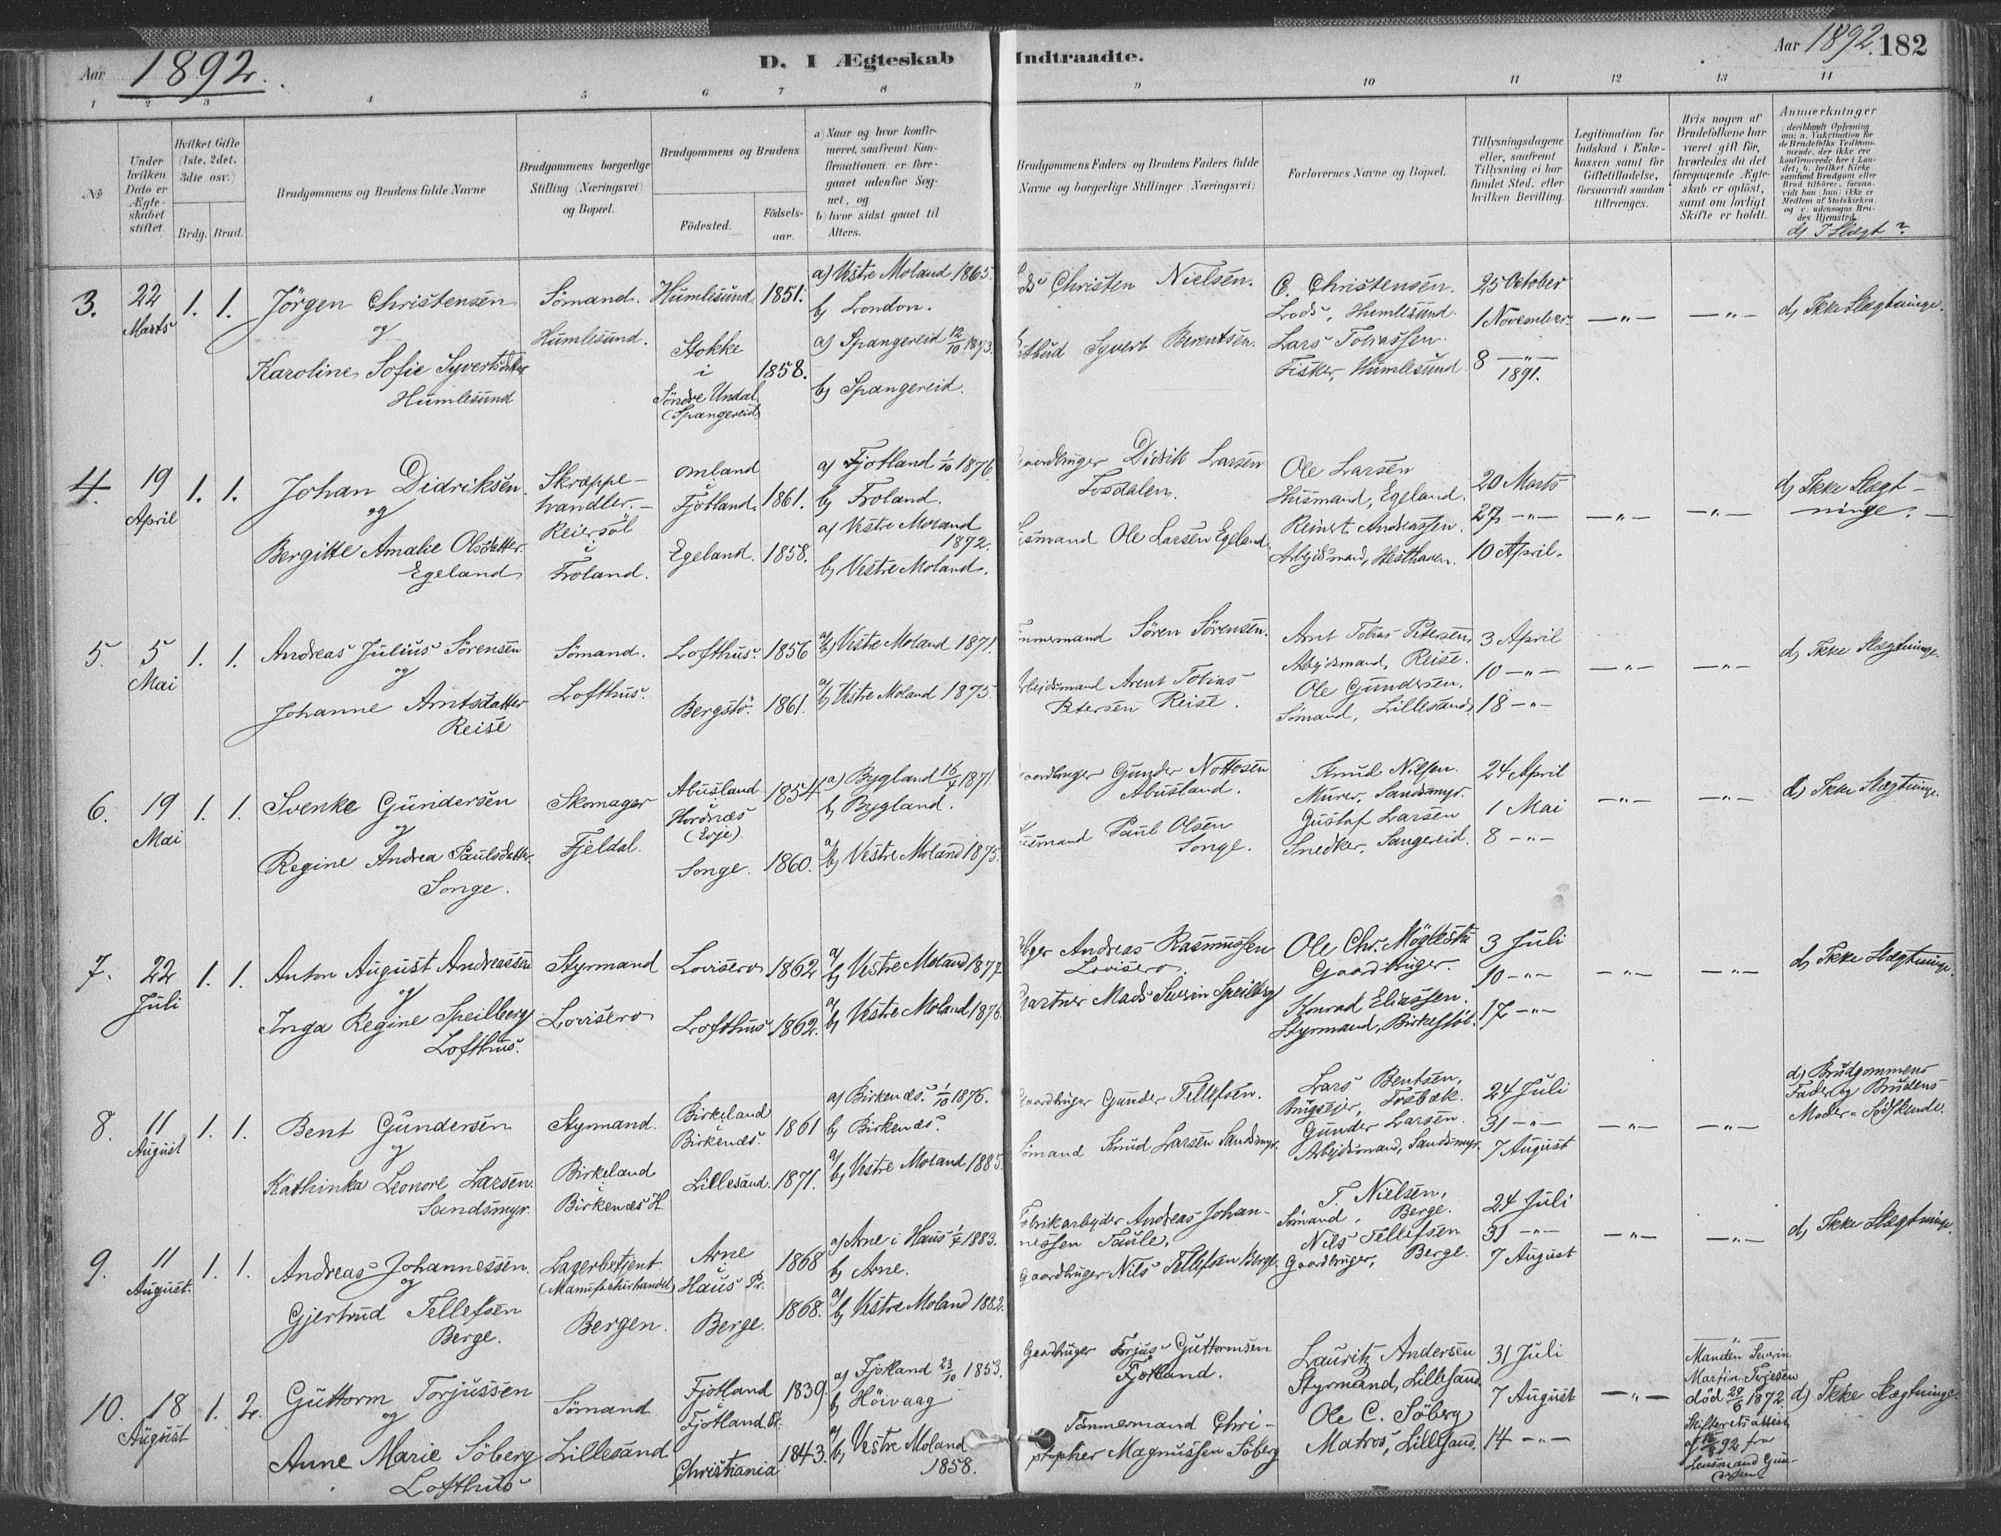 Aar 1892.
D. I Ægteskab Indtraadte.
Aar 1892. 182
1 2 3 4 5 6 7 8 9 10 11 12 13 14
No
Under hvilken Dato er Ægteskabet stiftet.
Hvilket Gifte (1ste, 2det, 3die osv.)
Brdg. Brud.
Brudgommens og Brudens fulde Navne
Brudgommens borgerlige Stilling (Næringsvei) og Bopæl.
Brudgommens og Brudens
Födested.
Födselsaar.
a) Naar og hvor konfirmeret, saafremt Konfirmationen er foregaaet udenfor Sognet, og
b) hvor sidst gaaet til Alters.
Brudgommens Faders og Brudens Faders fulde Navne og borgerlige Stillinger (Næringsvei)
Forlovernes Navne og Bopæl.
Tillysningsdagene eller, saafremt Tillysning ei har fundet Sted, efter hvilken Bevilling.
Legitimation for Indskud i Enkekassen samt for Giftetilladelse, forsaavidt saadan tiltrænges.
Hvis nogen af Brudefolkene har været gift för, hvorledes da det foregaaende Ægteskab er oplöst, samt om lovligt Skifte er holdt.
Anmerkninger
(deriblandt Oplysning om: a. Vakcination for de Brudefolks Vedkommende, der ikke ere konfirmerede her i Landet; b. hvilket Kirkesamfund Brudgom eller Brud tilhörer, forsaavidt han (hun) ikke er Medlem af Statskirken, og c. udensogns Brudes Hjemsted.
d) I Slægt?
3. 22 Marts 1. 1.
Jörgen Christensen
og
Karoline Sofie Syvertsdatter
Humlesund
Sömand.
Humlesund.
Humlesund 1851.
Stokke
i
Söndre Undal
(Spangereid) 1858.
a) Vestre Moland 1865.
b) London.
a) Spangereid 12/10 1873.
b) Spangereid.
Lods Christen Nielsen.
Syvert Berentsen.
C. Christensen.
Lods, Humlesund.
Lars Tobiassen.
Fisker, Humlesund
25 October
1 November.
8 —"—
1891.
—"— —"—
d) Ikke Slægtninge.
4. 19 April 1. 1.
Johan Didriksen
og
Bergitte Amalie Olsdatter
Egeland
Skræppehandler.
Reiersöl
i
Froland.
Omland
i
Fjotland. 1861.
Egeland. 1858.
a) Fjotland 1/10 1876
b) Froland.
a) Vestre Moland
1872.
b) Vestre Moland.
Gaardbruger Didrik Larsen
Fosdalen.
Husmand Ole Larsen Egeland.
Ole Larsen
Husmand, Egeland.
Reinert Andreassen.
Arbejdsmand, Hesthaven.
20 Marts
27 —"—
10 April.
—"— —"—
d) Ikke Slægtninge.
5. 5 Mai 1. 1.
Andreas Julius Sörensen
og
Johanne Arntsdatter
Reise
Sömand.
Lofthus.
Lofthus. 1856
Bergstö. 1861.
a/b) Vestre Moland 1871.
a/b) Vestre Moland 1875.
Tömmermand Sören Sörensen.
Arbeidsmand Arent Tobias
Petersen Reise.
Arnt Tobias Petersen,
Arbejdsmand, Reise.
Ole Gundersen,
Sömand, Lillesand.
3 April
10 —"—
18 —"—
—"— —"—
d) Ikke Slægtninge.
6. 19 Mai 1. 1.
Svenke Gundersen
og
Regine Andrea Paulsdatter
Songe.
Skomager
Fjeldal.
Abusland
i
Hordnæs
(Evje). 1854.
Songe. 1860.
a) Bygland 16/4 1871.
b) Bygland.
a/b) Vestre Moland 1875.
Gaardbruger Gunder Nottosen
Abusland.
Husmand Paul Olsen
Songe.
Knud Nilsen.
Murer, Sandsmyr.
Gustaf Larsen
Snedker, Sangereid.
24 April
1 Mai
8 —"—
—"— —"—
d) Ikke Slægtninge.
7. 22 Juli 1. 1.
Anton August Andreassen
og
Inga Regine Speilberg
Lofthus.
Styrmand
Lovisero
Lovisero 1862
Lofthus 1862.
a/b) Vestre Moland 1877
a/b) Vestre Moland 1876.
Andreas Rasmussen
Lovisero.
Gartner Mads Severin Speilberg
Ole Chr. Möglestu
Gaardbruger.
Konrad Eliassen.
Styrmand, Birkestöl.
3 Juli
10 —"—
17 —"—
—"— —"—
d) Ikke Slægtninge.
8. 11 August 1. 1.
Bent Gundersen
og
Kathinka Leonore Larsen
Sandsmyr.
Styrmand.
Birkeland
i
Birkenæs H.
Birkeland
i
Birkenæs. 1861
Lillesand. 1871.
a) Birkenæs. 1/10 1876.
b) Birkenæs.
a/b) Vestre Moland 1885.
Gaardbruger Gunder Tellefsen.
Sömand Knud Larsen Sandsmyr.
Lars Bentsen,
Brugsejer, Fosbæk.
Gunder Larsen.
Arbejdsmand, Sandsmyr.
24 Juli
31 —"—
7 August
—"— —"—
d) Brudgommens
Fader og Brudens
Moder = Södskende.
9. 11 August. 1. 1.
Andreas Johannessen.
og
Gjertrud Tellefsen
Berge.
Lagerbetjent
(Manufakturhandel)
Bergen.
Arne
i
Haus Pr. 1868
Berge. 1868.
a) Arne i Haus 1/4 1883.
b) Arne.
a/b) Vestre Moland 1882.
Fabrikarbeider Andreas Johannessen Taule,
Gaardbruger Nils Tellefsen Berge
T. Nielsen,
Sömand, Berge.
Nils Tellefsen
Gaardbruger, Berge.
24 Juli
31 —"—
7 August
—"— —"—
d) Ikke Slægtninge.
10. 18 August 1. 2.
Guttorm Torjussen
og
Anne Marie Söberg
Lofthus
Sömand
Lillesand
Fjotland
i
Fjotland Pr. 1839.
Christiania 1843.
a) Fjotland 23/10 1853.
b) Höivaag
a/b) Vestre Moland
1858.
Gaardbruger Torjus Guttormsen
Fjotland.
Tömmermand Christopher Magnussen Söberg
Lauritz Andersen
Styrmand, Lillesand
Ole C. Söberg
Matros, Lillesand.
31 Juli
7 August
14 —"—
—"—
—"—
Manden Severin
Martin Terjesen
död 29/6 1872.
Skifteretsattest
af 15/8 92 fra
Lensmand Gundersen
d) Ikke Slægtninge.